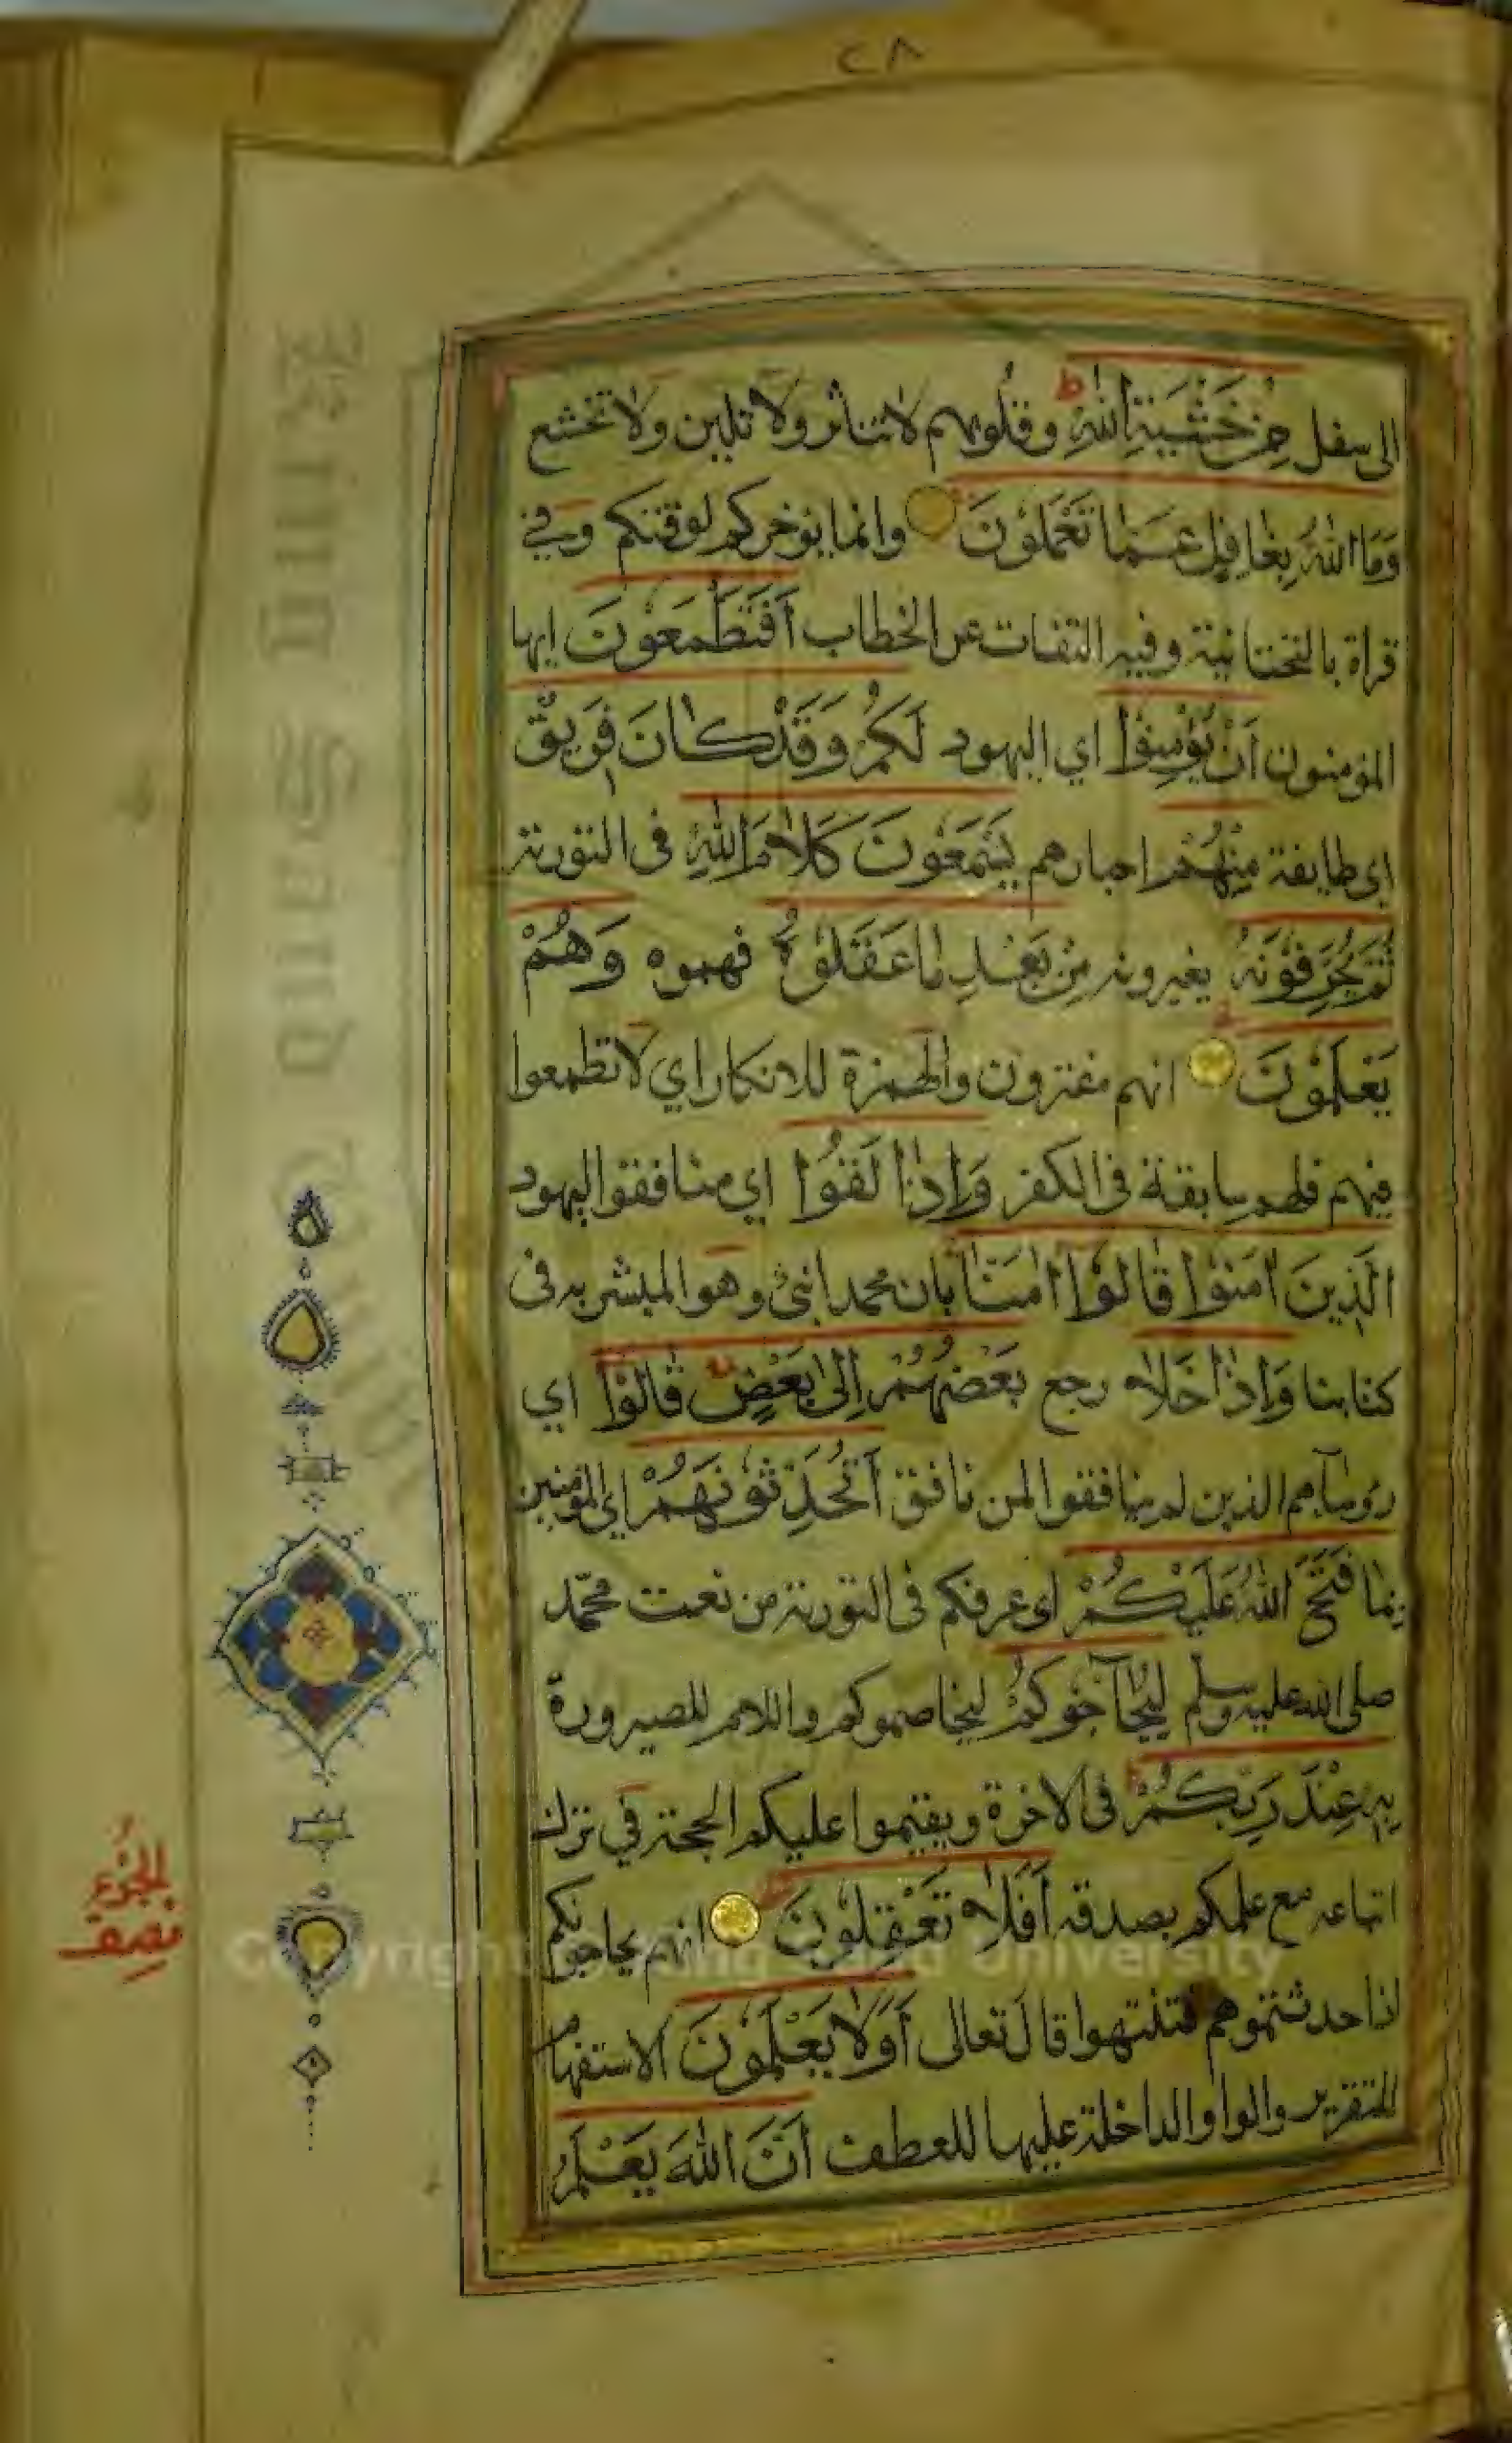 ٢٨
الى سفل مِنْ خَشْيَةِ اللّٰهِ ط وقلوبهم لا تتاثر ولا تلين ولا تخشع
وَمَا اللّٰهُ بِغَافِلٍ عَمَّا تَعْمَلُوْنَ وانما يوخركم لوقتكم وفي
قراة بالتحتانية وفيه التفات عن الخطاب اَفَتَطْمَعُوْنَ ايها
المؤمنون اَنْ يُؤْمِنُوْا اي اليهود لَكُمْ وَقَدْ كَانَ فَرِيْقٌ
اى طايفة مِنْهُمْ احبارهم يَسْمَعُوْنَ كَلَامَ اللّٰهِ فى التورىة
ثُمَّ يُحَرِّفُوْنَهُ يغيرونه مِنْ بَعْدِ مَا عَقَلُوْهُ فهموه وَهُمْ
يَعْلَمُوْنَ انهم مفترون والهمزة للانكار اي لا تطمعوا
فيهم فلهم سابقة فى الكفر وَاِذَا لَقُوْا اي منافقوا اليهود
الَّذِيْنَ اٰمَنُوْا قَالُوْا اٰمَنَّا بان محمدا نبي وهو المبشر به فى
كتابنا وَاِذَا خَلَا رجع بَعْضُهُمْ اِلىٰ بَعْضٍ قَالُوْا اي
روساهم الذين لم ينافقوا لمن نافق اَتُحَدِّثُوْنَهُمْ اي المؤمنين
بِمَا فَتَحَ اللّٰهُ عَلَيْكُمْ اى عرفكم فى التورىة من نعت محمّد
صلى الله عليه وسلم لِيُحَآجُّوْكُمْ ليخاصموكم واللام للصيرورة
بِهٖ عِنْدَ رَبِّكُمْ فى الاخرة ويقيموا عليكم الحجة في ترك
اتباعه مع علمكم بصدقه اَفَلَا تَعْقِلُوْنَ انهم يحاجونكم
اذا حدثتموهم فتنتهوا قال تعالى اَوَلَا يَعْلَمُوْنَ الاستفهام
للتقرير والواو الداخلة عليها للعطف اَنَّ اللّٰهَ يَعْلَمُ
نصف
الجُزْءِ
Copyright © King Saud University